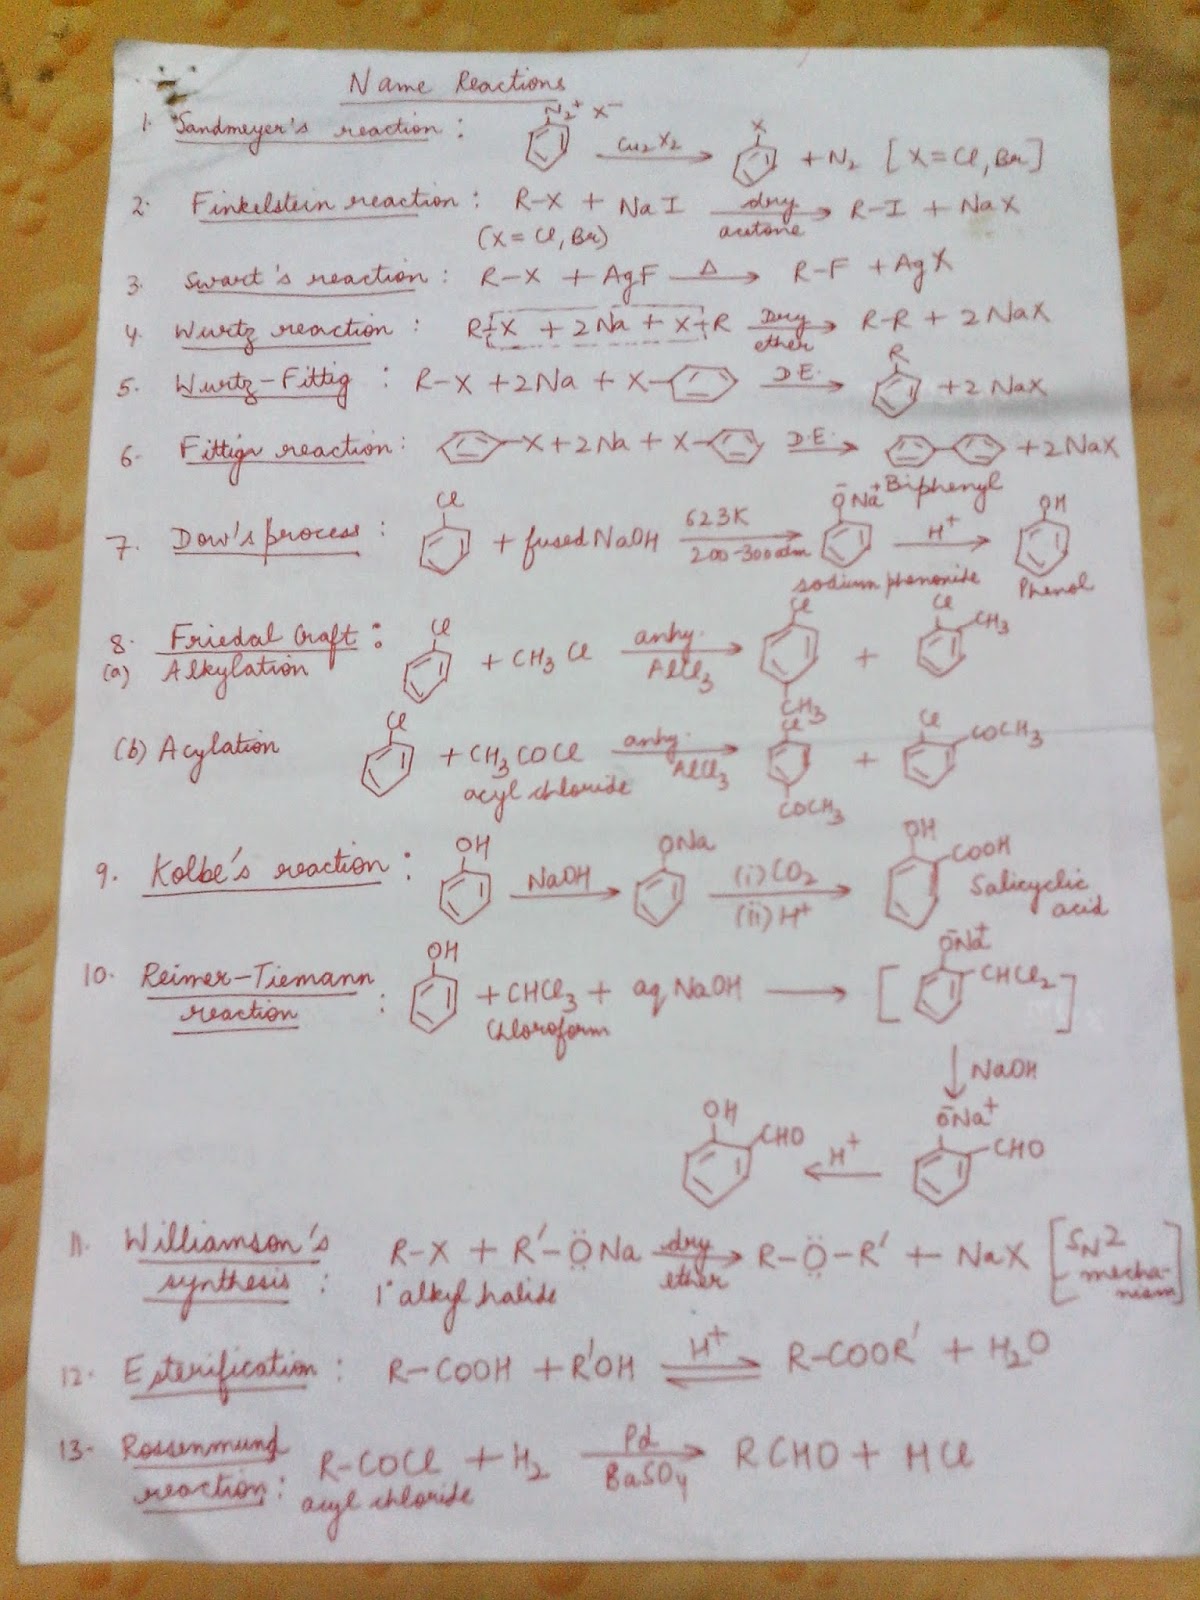 Name Reactions
1. Sandmeyer's reaction : N₂⁺ X⁻ Cu₂X₂ X + N₂ [X = Cl, Br]
2. Finkelstein reaction : R-X + NaI dry acetone → R-I + NaX
(X = Cl, Br)
3. Swart's reaction : R-X + AgF Δ → R-F + AgX
4. Wurtz reaction : R-X + 2Na + X-R Dry ether → R-R + 2NaX
5. Wurtz-Fittig : R-X + 2Na + X- D.E. → R + 2NaX
6. Fittig reaction : -X + 2Na + X- D.E. → + 2NaX
Biphenyl
7. Dow's process : Cl + fused NaOH 623K 200-300atm → ŌNa⁺ H⁺ → OH
sodium phenoxide Phenol
8. Friedal Craft :
(a) Alkylation Cl + CH₃Cl anhy. AlCl₃ → Cl CH₃ + Cl CH₃
(b) Acylation Cl + CH₃COCl anhy. AlCl₃ → Cl COCH₃ + Cl COCH₃
acyl chloride
9. Kolbe's reaction : OH NaOH → ONa (i) CO₂ (ii) H⁺ → OH COOH
Salicyclic acid
10. Reimer-Tiemann reaction : OH + CHCl₃ + aq NaOH → [ŌNa⁺ CHCl₂]
Chloroform
↓ NaOH
OH CHO ← H⁺ ŌNa⁺ CHO
11. Williamson's synthesis : R-X + R′-ÖNa dry ether → R-Ö-R′ + NaX [SN2 mechanism]
1° alkyl halide
12. Esterification : R-COOH + R′OH H⁺ ⇌ R-COOR′ + H₂O
13. Rossenmund reaction : R-COCl + H₂ Pd BaSO₄ → RCHO + HCl
acyl chloride